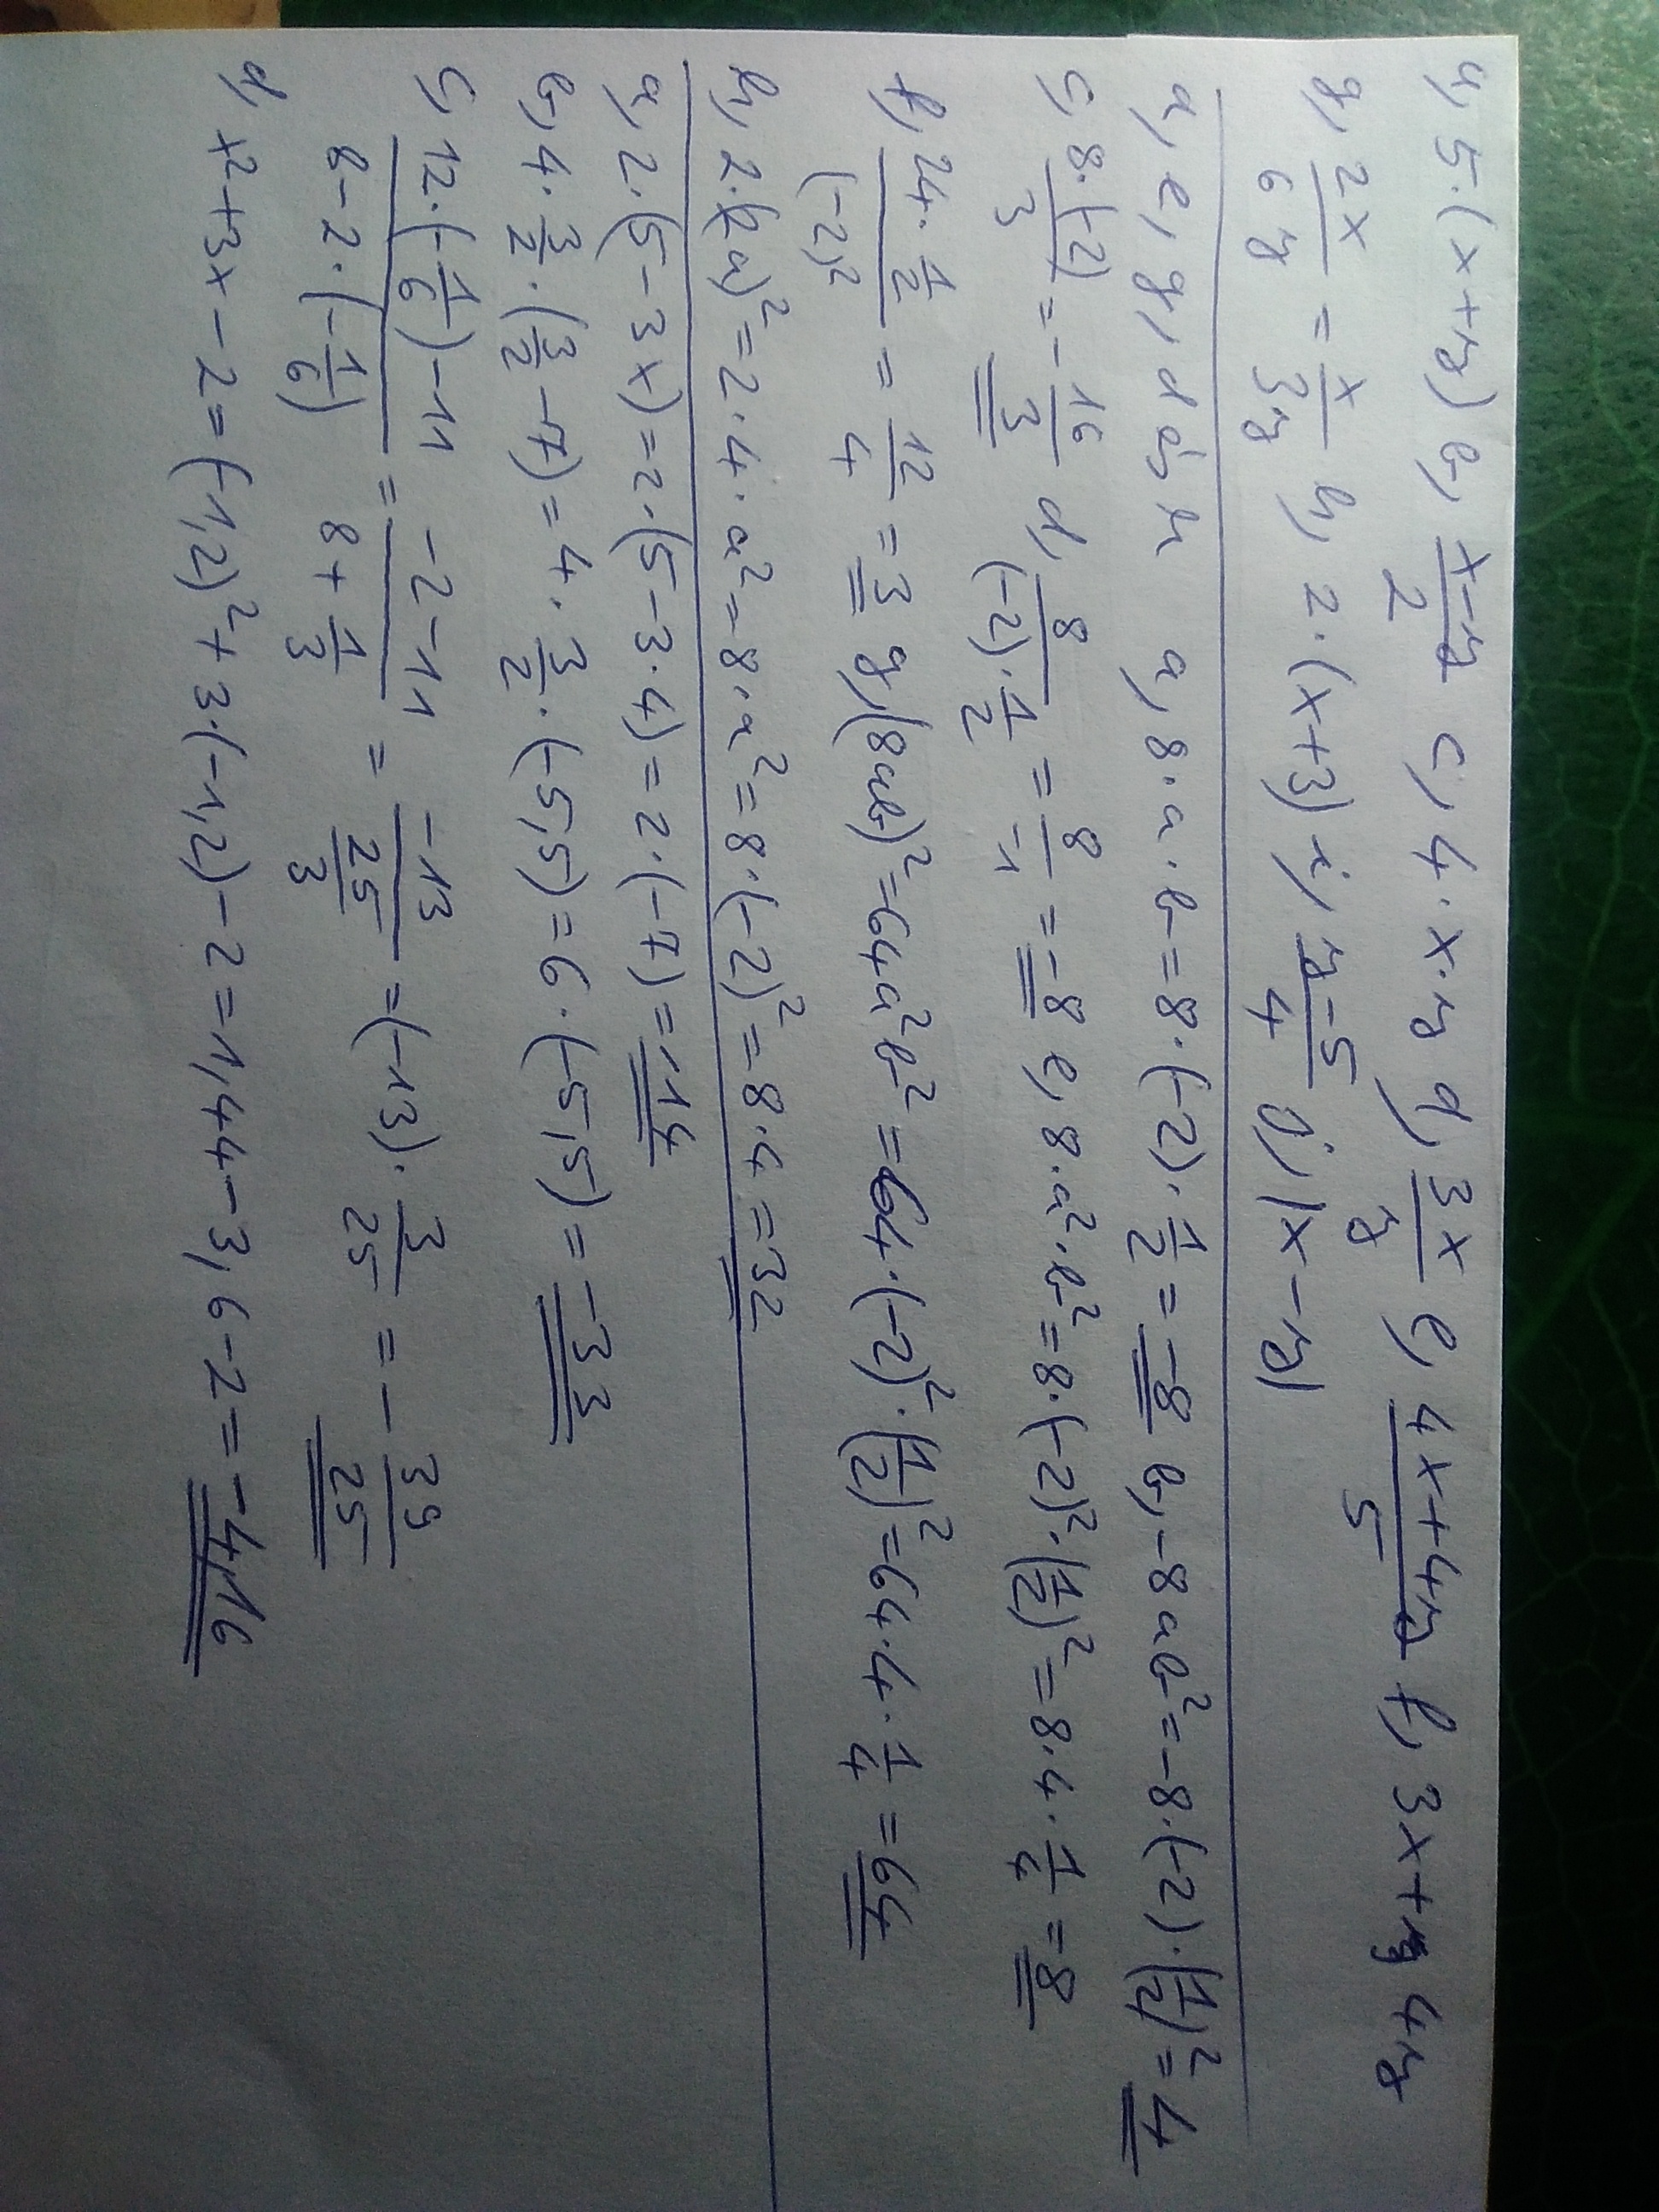 a, 5·(x+y) b, (x-y)/2 c, 4·x·y d, 3x/y e, (4x+4y)/5 f, 3x+y 4y
g, 2x/6y = x/3y h, 2·(x+3) i, (y-5)/4 j, |x-y|
a, e, g, d és h a, 8·a·b=8·(-2)·1/2=-8 b, -8ab²=-8·(-2)·(1/2)²=4
c, 8·(-2)/3 = -16/3 d, 8/((-2)·1/2) = 8/-1 = -8 e, 8·a²·b²=8·(-2)²·(1/2)²=8·4·1/4=8
f, (24·1/2)/(-2)² = 12/4 = 3 g, (8ab)²=64a²b²=64·(-2)²·(1/2)²=64·4·1/4=64
h, 2·(2a)²=2·4·a²=8·a²=8·(-2)²=8·4=32
a, 2·(5-3x)=2·(5-3·4)=2·(-7)=-14
b, 4·3/2·(3/2-7)=4·3/2·(-5,5)=6·(-5,5)=-33
c, (12·(-1/6)-11)/(8-2·(-1/6)) = (-2-11)/(8+1/3) = -13/(25/3) = (-13)·3/25 = -39/25
d, x²+3x-2=(-1,2)²+3·(-1,2)-2=1,44-3,6-2=-4,16